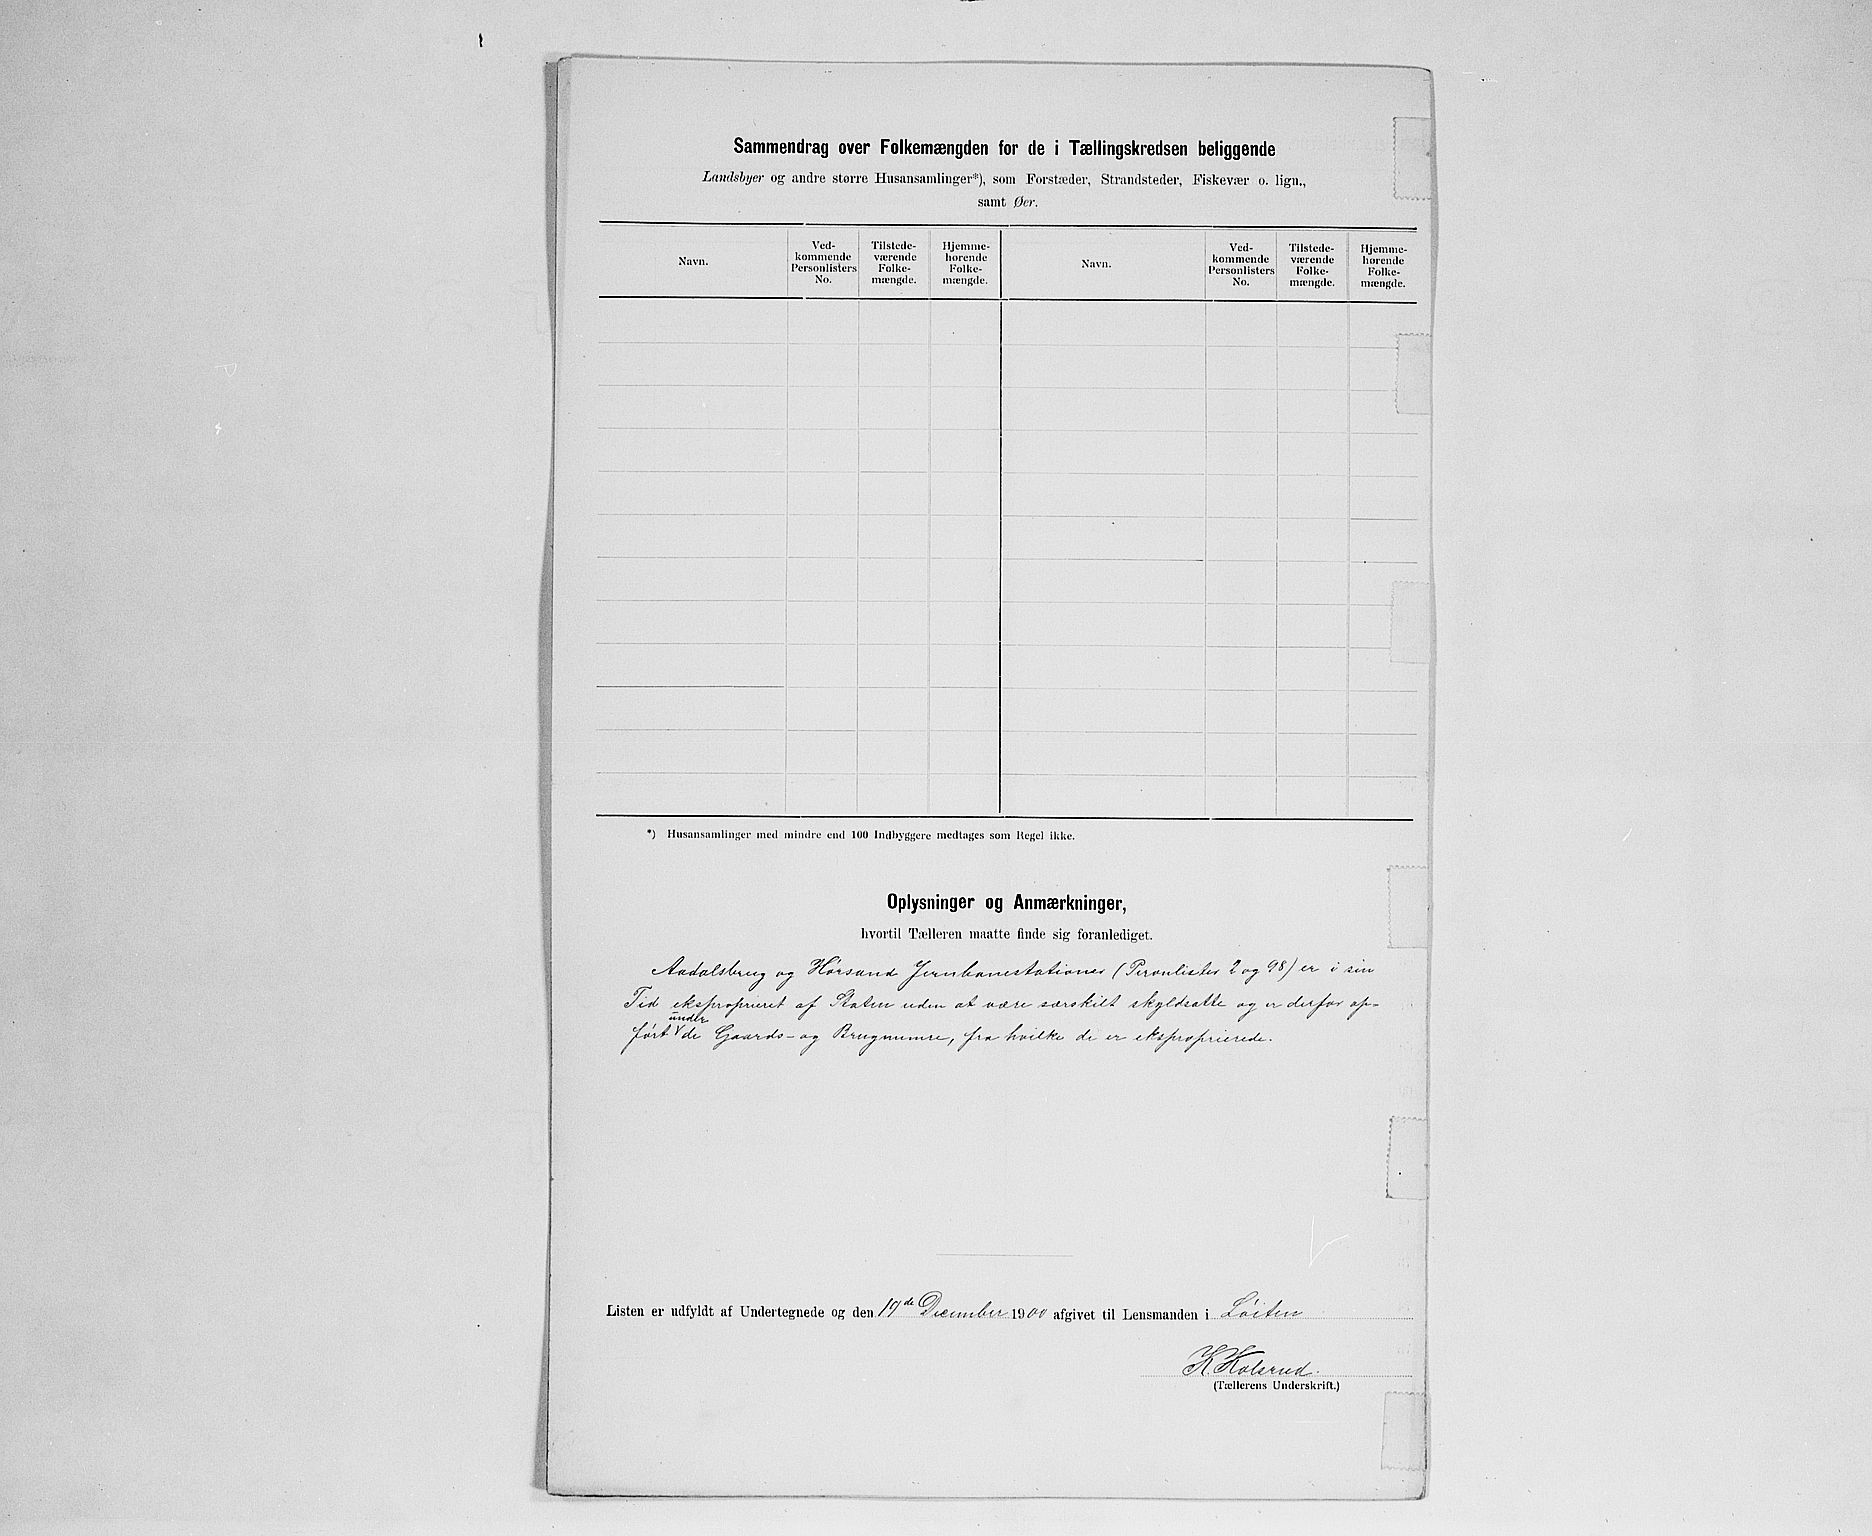 Sammendrag over Folkemængden for de i Tællingskredsen beliggende
Landsbyer og andre større Husansamlinger*), som Forstæder, Strandsteder, Fiskevær o. lign.,
samt Øer.
Navn.
Ved-
kommende
Personlisters
No.
Tilstede-
værende
Folke-
mængde.
Hjemme-
hørende
Folke-
mængde.
Navn.
Ved-
kommende
Personlisters
No.
Tilstede-
værende
Folke-
mængde.
Hjemme-
hørende
Folke-
mængde.
*) Husansamlinger med mindre end 100 Indbyggere medtages som Regel ikke.
Oplysninger og Anmærkninger,
hvortil Tælleren maatte finde sig foranlediget.
Aadalsbrug og Hørsand Jernbanestationer (Personlister 2 og 98) er i sin
Tid eksproprieret af Staten uden at være særskilt skyldsatte og er derfor op-
ført under de Gaards- og Brugnumre, fra hvilke de er eksproprierede.
Listen er udfyldt af Undertegnede og den 19de December 1900 afgivet til Lensmanden i Løiten
K. Kolsrud.
(Tællerens Underskrift.)